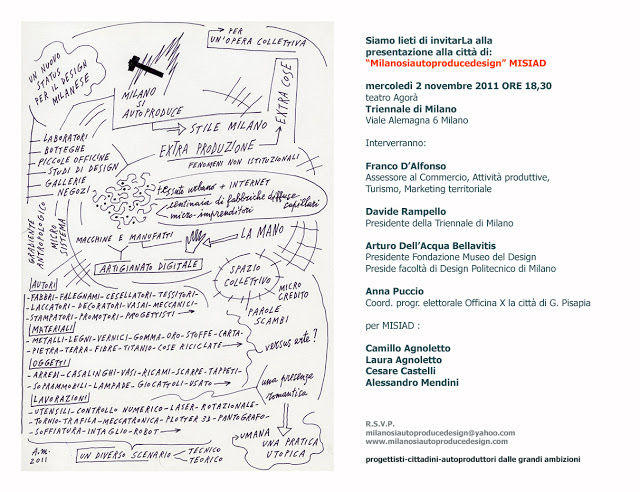 PER
UN'OPERA COLLETTIVA
UN NUOVO
STATUS
PER IL DESIGN
MILANESE
MILANO
SI
AUTOPRODUCE
EXTRA COSE
STILE MILANO
EXTRA PRODUZIONE
FENOMENI NON ISTITUZIONALI
LABORATORI
BOTTEGHE
PICCOLE OFFICINE
STUDI DI DESIGN
GALLERIE
NEGOZI
GRADIENTE
ANTROPOLOGICO
MICRO
SISTEMA
tessuto urbano + INTERNET
centinaia di fabbriche diffuse
capillari
micro-imprenditori
MACCHINE E MANUFATTI
LA MANO
ARTIGIANATO DIGITALE
SPAZIO
COLLETTIVO
MICRO
CREDITO
PAROLE
SCAMBI
AUTORI
FABBRI-FALEGNAMI-CESELLATORI-TESSITORI-
LACCATORI-DECORATORI-VASAI-MECCANICI-
STAMPATORI-PROMOTORI-PROGETTISTI
MATERIALI
METALLI-LEGNI-VERNICI-GOMMA-ORO-STOFFE-CARTA-
PIETRA-TERRA-FIBRE-TITANIO-COSE RICICLATE
versus arte?
OGGETTI
ARREDI-CASALINGHI-VASI-RICAMI-SCARPE-TAPPETI-
SOPRAMMOBILI-LAMPADE-GIOCATTOLI-USATO
una presenza
romantica
LAVORAZIONI
UTENSILI-CONTROLLO NUMERICO-LASER-ROTAZIONALE-
TORNIO-TRAFILA-MECCATRONICA-PLOTTER 3D-PANTOGRAFO-
SOFFIATURA-INTAGLIO-ROBOT
UMANA
UNA PRATICA
UTOPICA
A.M.
2011
UN DIVERSO SCENARIO
TECNICO
TEORICO
Siamo lieti di invitarLa alla
presentazione alla città di:
"Milanosiautoproducedesign" MISIAD
mercoledì 2 novembre 2011 ORE 18,30
teatro Agorà
Triennale di Milano
Viale Alemagna 6 Milano
Interverranno:
Franco D'Alfonso
Assessore al Commercio, Attività produttive,
Turismo, Marketing territoriale
Davide Rampello
Presidente della Triennale di Milano
Arturo Dell'Acqua Bellavitis
Presidente Fondazione Museo del Design
Preside facoltà di Design Politecnico di Milano
Anna Puccio
Coord. progr. elettorale Officina X la città di G. Pisapia
per MISIAD :
Camillo Agnoletto
Laura Agnoletto
Cesare Castelli
Alessandro Mendini
R.S.V.P.
milanosiautoproducedesign@yahoo.com
www.milanosiautoproducedesign.com
progettisti-cittadini-autoproduttori dalle grandi ambizioni